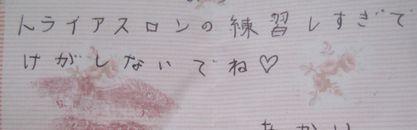 トライアスロンの練習しすぎで
けがしないでね♡